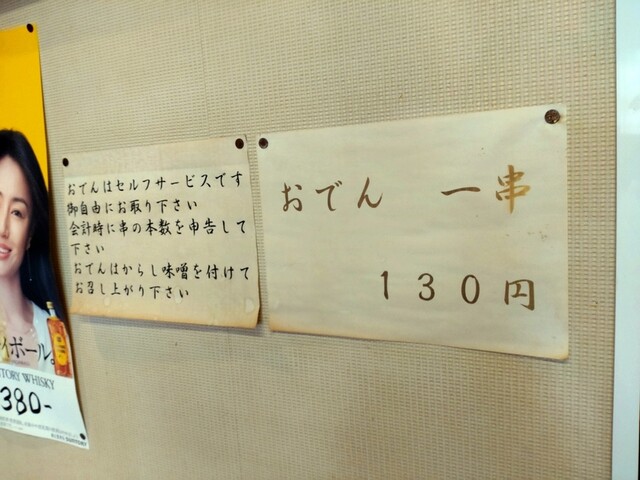 おでんはセルフサービスです
御自由にお取り下さい
会計時に串の本数を申告して
下さい
おでんはからし味噌を付けて
お召し上がり下さい
おでん 一串
130円
イボール。
STORY WHISKY
380-